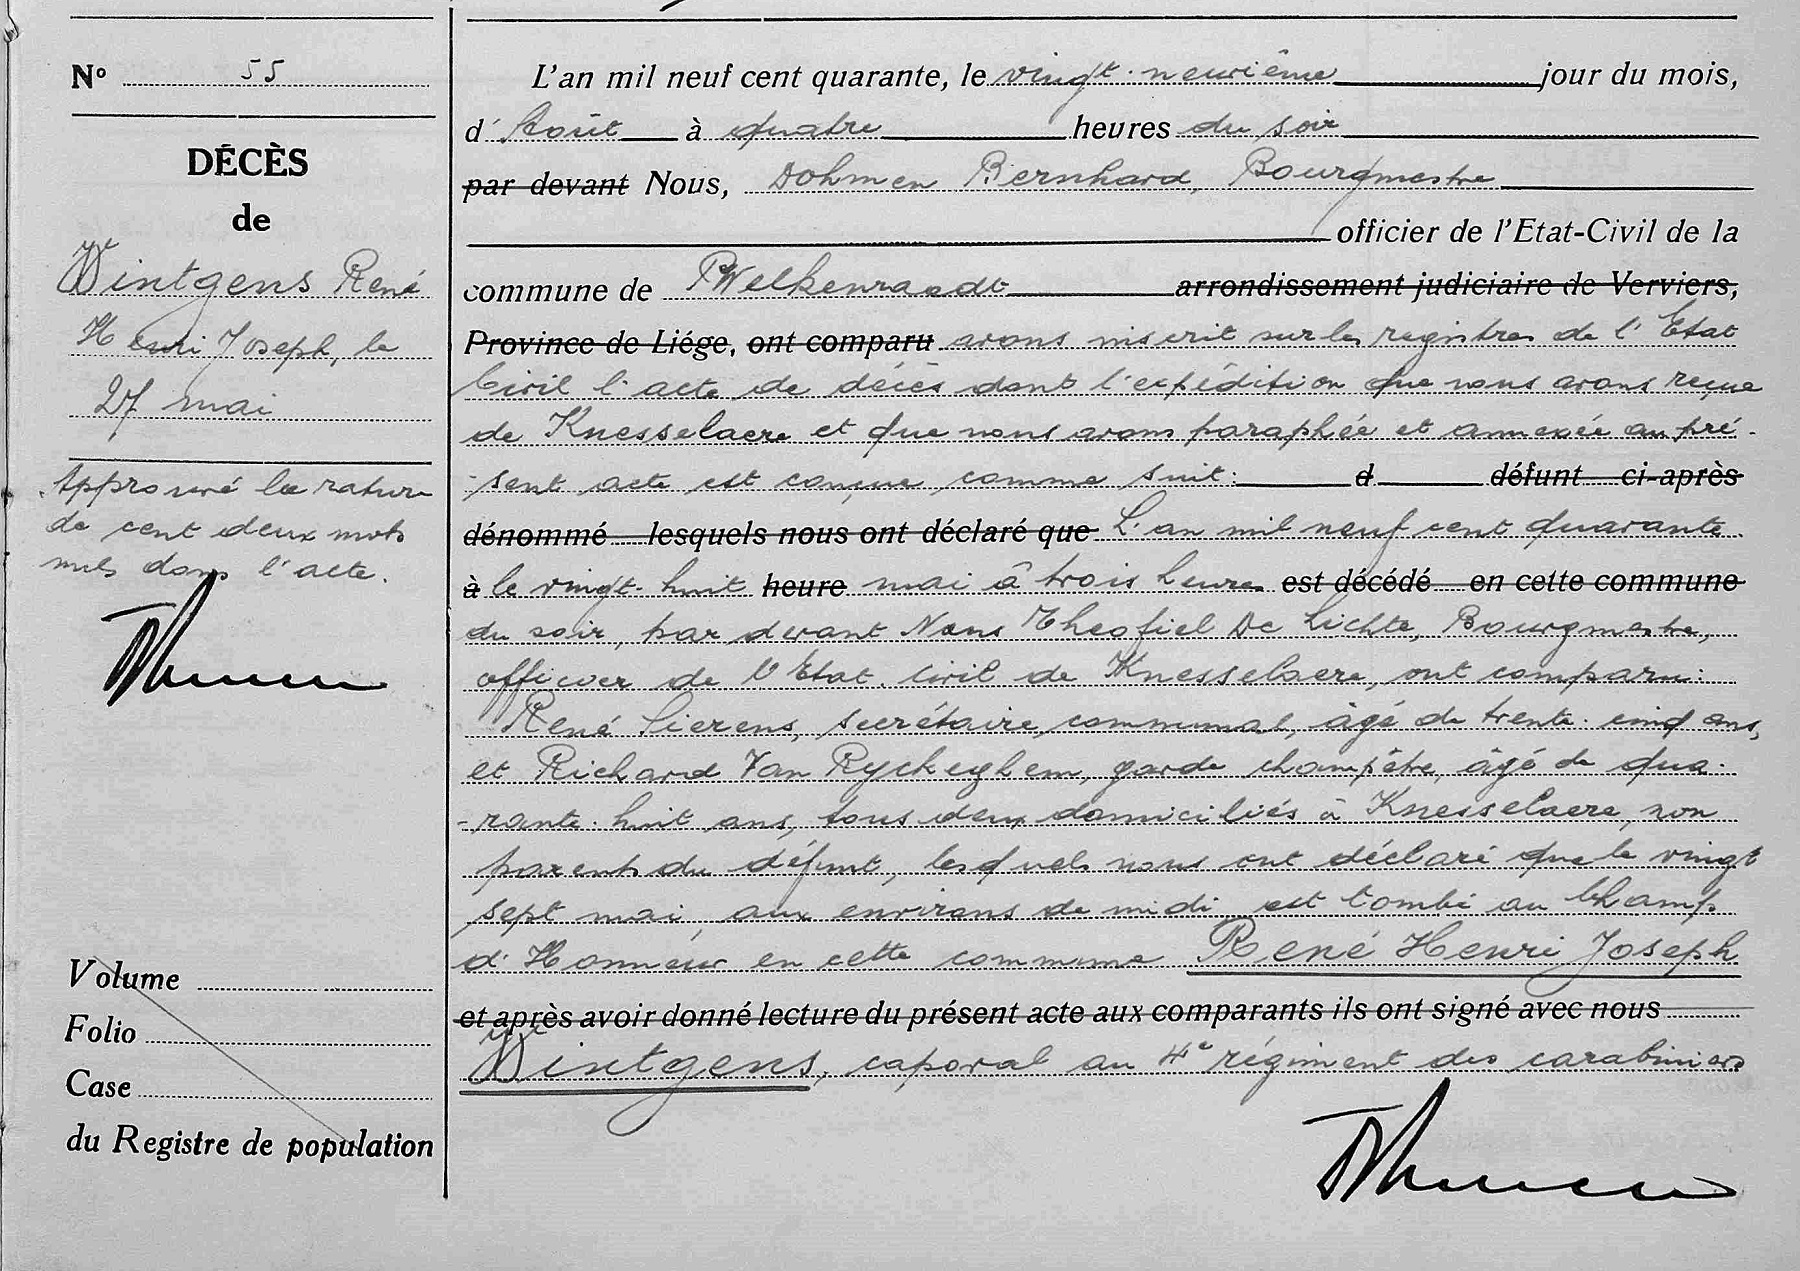 Nº 55
DÉCÈS
de
Wintgens René
Henri Joseph, le
27 mai
Approuvé la rature
de cent deux mots
nuls dans l'acte.
Volume
Folio
Case
du Registre de population
L'an mil neuf cent quarante, le vingt-neuvième jour du mois,
d'Août à quatre heures du soir
par devant Nous, Dohmen Bernhard, Bourgmestre
officier de l'Etat-Civil de la
commune de Welkenraedt arrondissement judiciaire de Verviers,
Province de Liége, ont comparu avons inscrit sur les registres de l'Etat
Civil l'acte de décès dont l'expédition que nous avons reçue
de Knesselaere et que nous avons paraphée et annexée au pré-
-sent acte est conçue comme suit: d défunt ci-après
dénommé lesquels nous ont déclaré que L'an mil neuf cent quarante
à le vingt-huit heure mai à trois heures est décédé en cette commune
du soir, par devant Nous Theofiel De Lichte, Bourgmestre,
officier de l'Etat-Civil de Knesselaere, ont comparu:
René Sierens, secrétaire communal, âgé de trente-cinq ans,
et Richard Van Ryckeghem, garde champêtre, âgé de qua-
-rante-huit ans, tous deux domiciliés à Knesselaere, non
parents du défunt, lesquels nous ont déclaré que le vingt
sept mai, aux environs de midi est tombé au Champ
d'Honneur en cette commune René Henri Joseph
et après avoir donné lecture du présent acte aux comparants ils ont signé avec nous
Wintgens, caporal au 4e régiment des carabiniers